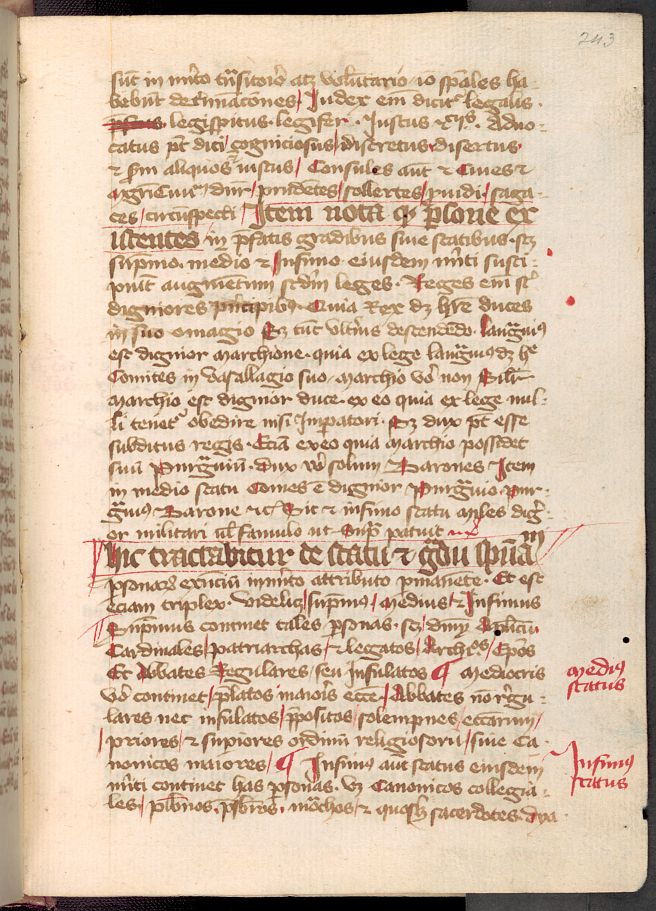 243
sunt in mito tnsitorio atz voluntario io spales ha-
bebunt detinacones Iudex eni dicitr legalis
legisperitus legisfer Iustus Advo-
catus pt dici cogniciosus discretus disertus
et aliquos iustus Consules aut et Cives et
Agricule dnr prudentes sollertes pvidi saga-
ces circuspecti Item nota psone ex
istentes in pfatis gradibus sive statibus scz
supmo medio et infimo eiusdem miti susci-
piut augmentum scdm leges Reges eni st
digniores principibus Quia Rex dz hre duces
in suo omagio Et tunc ultius descendendo langravius
est dignior marchione quia ex lege langravius dz he
Comites in vasallagio suo marchio vo non
marchio est dignior duce ex eo quia ex lege nul-
li tenetr obedire nisi Impatori Sz dux pt esse
subditus regis Etia ex eo quia marchio possidet
suu Purgviu Dux vo solum Barones Item
in medio statu Comes e dignior Purgvio Pur-
gvius Barone Sic et infimo statu miles dig-
or militari ul famulo ut supra patuit
hic tractabitur de statu et gdu spualium
psonarum exnciu in mito attributo pmanete Et est
eciam triplex videlicz supmus medius et Infimus
Supmus continet tales psonas scz dnm Aplicu
Cardinales patriarchas et legatos Archieps Epos
Et Abbates Regulares seu Infulatos Mediocris
vo continet platos maioris ecce Abbates no regu-
lares nec infulatos ppositos solempnes eccarum
priores et supiores ordinu religiosoru sive Ca-
nonicos maiores Infimus aut status eiusdem
miti continet has psonas vz Canonicos collegia-
les plbnos psbros mochos et quosqz sacerdotes dya
medius
status
Infimus
status